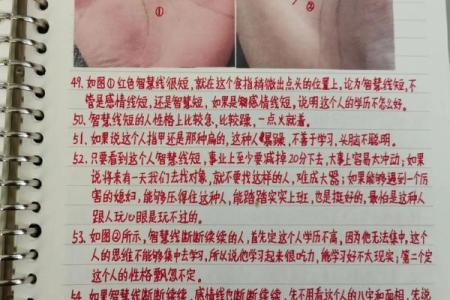 ①
②
49. 如图①红色智慧线很短,就在这个食指稍微出点头的位置上,论为智慧线短,不
管是感情线短,还是智慧短,如果是个感情线短,说明这个人的学历不怎么好。
50. 智慧线短的人性格上比较急,比较躁,一点火就着。
51. 如果说这个人指甲还是那种扁的,这种人爆躁,不善于学习,头脑不聪明。
52. 只要看到这个人智慧线短,事业上至少要减掉20分下去,大事上容易大冲动;如果
说将来有一天我们去找对象,就不要找这样的人,难成大器;如果能够遇到一个厉
害的媳妇,能够压得住这种人,能踏踏实实上班,也是挺好的,最怕是这种人
跟人玩心眼是玩不过的。
53. 如图②所示,智慧线断断续续的人,首先定这个人学历不高,因为他无法集中,这个
人的思维不能够集中去学习,所以说他学习起来很吃力,他学习好不太现实;第二个定
这个人的性格飘忽不定。
54. 如果智慧线断断续续,感情线也断断续续,先不用看这个人的八字和面相,先说